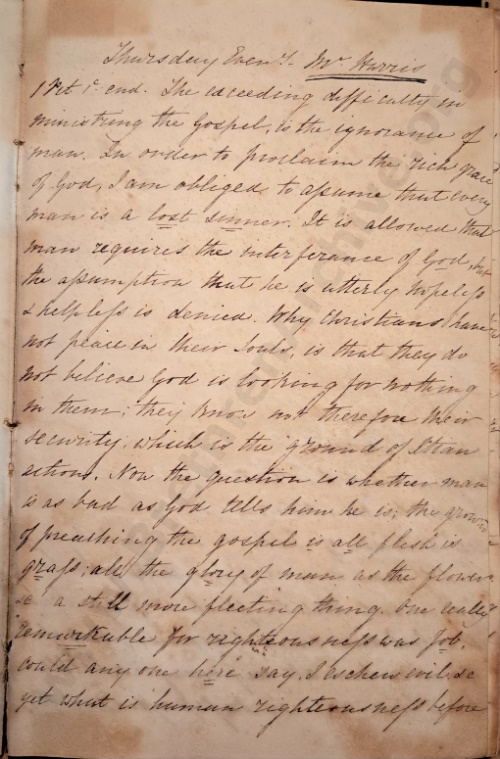 Thursday Even.g. Mr. Harris
1 Pet 1.c end. The exceeding difficulty in
ministring the Gospel, is the ignorance of
man. In order to proclaim the rich grace
of God, I am obliged to assume that every
man is a lost sinner. It is allowed that
man requires the interferance of God, but
the assumption that he is utterly hopeless
& helpless is denied. Why Christians have
not peace in their souls, is that they do
not believe God is looking for nothing
in them; they know not therefore their
security; which is the ground of Xtian
actions. Now the question is whether man
is as bad as God tells him he is; the ground
of preaching the gospel is all flesh is
grass; all the glory of man as the flower
&c a still more fleeting thing. One
remarkable for righteousness was Job.
could any one here say, I eschew evil &c
yet what is human righteousness before